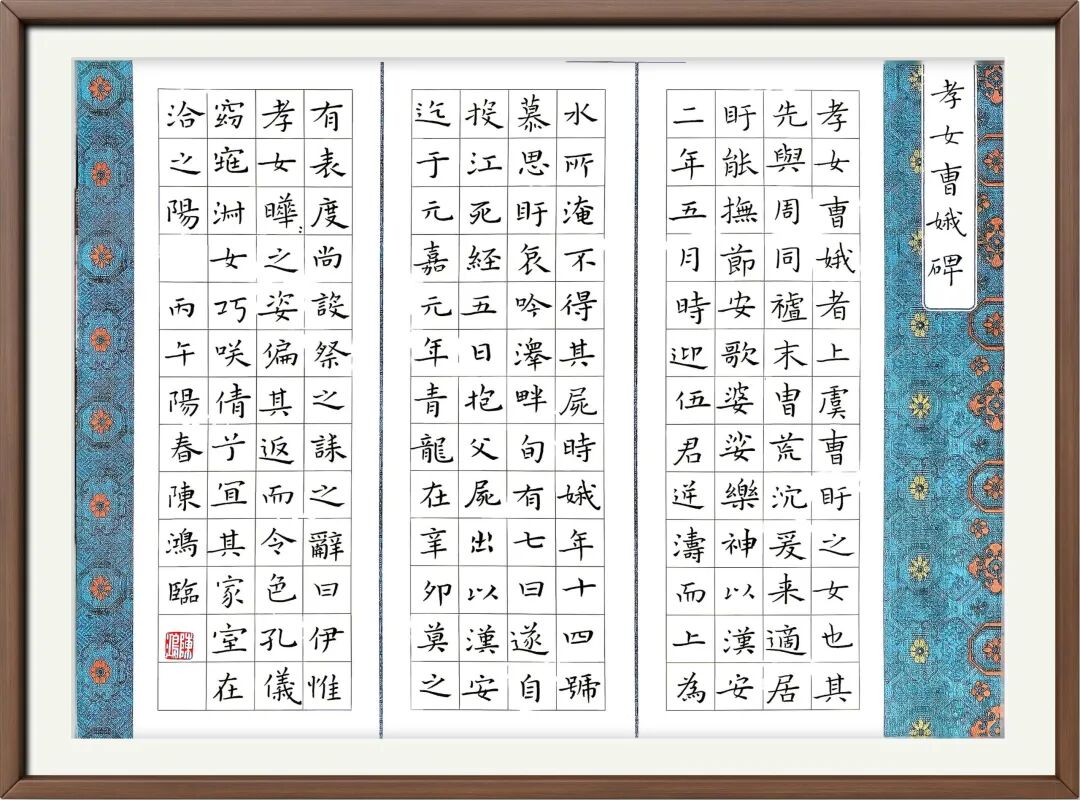 孝女曹娥碑
孝女曹娥者上虞曹盱之女也其
先與周同禠末冑荒沉爰来適居
盱能撫節安歌婆娑樂神以漢安
二年五月時迎伍君逆濤而上為
水所淹不得其屍時娥年十四號
慕思盱哀吟澤畔旬有七日遂自
投江死経五日抱父屍出以漢安
迄于元嘉元年青龍在辛卯莫之
有表度尚設祭之誄之辭曰伊惟
孝女曄之姿偏其返而令色孔儀
窈窕淑女巧咲倩兮宜其家室在
洽之陽 丙午陽春陳鴻臨
陳鴻